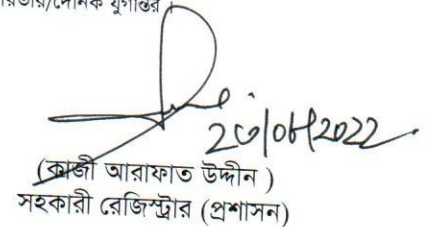 /দৈনিক যুগান্তর
২৩/০৮/2022
(কাজী আরাফাত উদ্দীন )
সহকারী রেজিস্ট্রার (প্রশাসন)